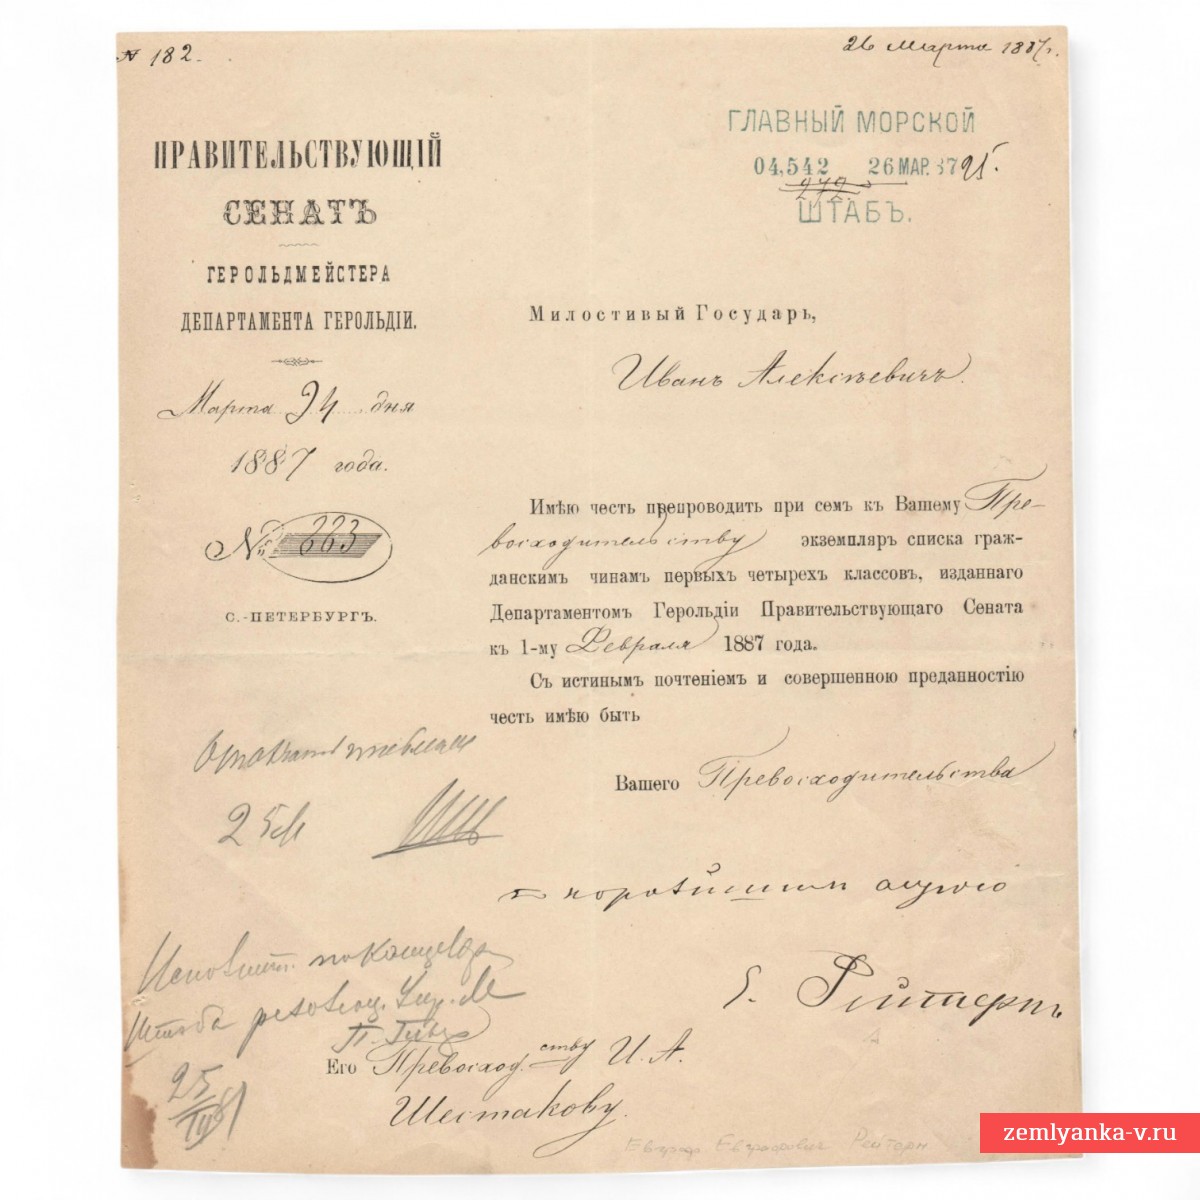 № 182.
26 Марта 1887г.
ГЛАВНЫЙ МОРСКОЙ
04,542 26 МАР. 87 25.
272
ШТАБЪ.
ПРАВИТЕЛЬСТВУЮЩІЙ
СЕНАТЪ
ГЕРОЛЬДМЕЙСТЕРА
ДЕПАРТАМЕНТА ГЕРОЛЬДІИ.
Марта 24 дня
1887 года.
№ 223
С.-ПЕТЕРБУРГЪ.
Милостивый Государь,
Иванъ Алексѣевичъ.
Имѣю честь препроводить при семъ къ Вашему Пре-
восходительству экземпляръ списка граж-
данскимъ чинамъ первыхъ четырехъ классовъ, изданнаго
Департаментомъ Герольдіи Правительствующаго Сената
къ 1-му Февраля 1887 года.
Съ истинымъ почтеніемъ и совершенною преданностію
честь имѣю быть
Вашего Превосходительства
покорнѣйшимъ слугою
Е. Рейтернъ
25 М
Штаба Упр. М
25/III 87
Его Превосход.ству И. А.
Шестакову.
Евграф Евграфович Рейтерн
zemlyanka-v.ru